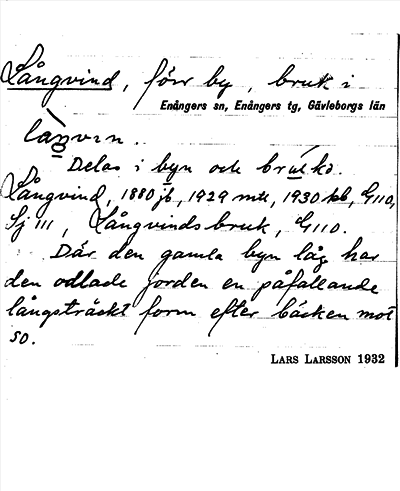 Långvind, förr by, bruk i
Enångers sn, Enångers tg, Gävleborgs län
långvin.
Delas i byn och bruket.
Långvind, 1880 jb, 1929 mtl, 1930 kb, G110,
Sj 111, Långvinds bruk, G110.
Där den gamla byn låg har
den odlade jorden en påfallande
långsträckt form efter bäcken mot
so.
LARS LARSSON 1932